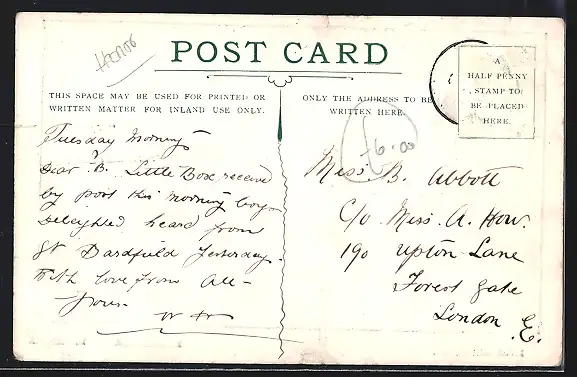 POST CARD
THIS SPACE MAY BE USED FOR PRINTED OR
WRITTEN MATTER FOR INLAND USE ONLY.
ONLY THE ADDRESS TO BE
WRITTEN HERE.
A
HALF PENNY
STAMP TO
BE PLACED
HERE.
£6.00
Tuesday Morning
Dear B. Little Box received
by post this morning boys
Delighted heard from
Gt Bardfield yesterday.
With love from All-
Yours
Miss. B. Abbott
C/o Miss. A. How.
190 Upton Lane
Forest Gate
London E.